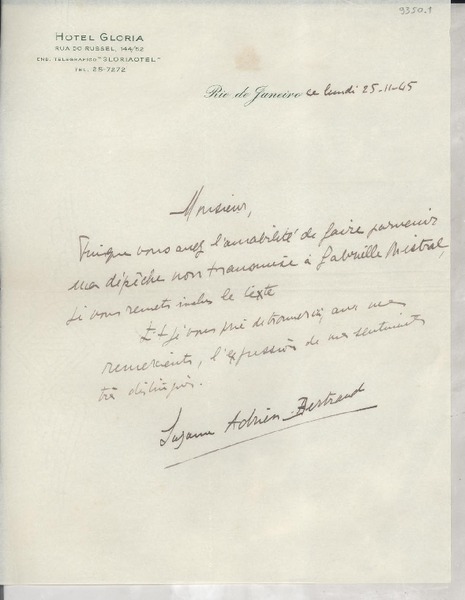 9350.1
HOTEL GLORIA
RUA DO RUSSEL, 144/52
END. TELEGRAFICO "GLORIAOTEL"
TEL: 25-7272
Rio de Janeiro ce lundi 25-11-45
Monsieur,
Puisque vous avez l'amabilité de faire parvenir
ma dépêche non transmise à Gabrielle Mistral,
je vous remets inclus le texte
Et je vous prie de trouver, avec mes
remerciements, l'expression de mes sentiments
très distingués.
Suzanne Adrien Bertrand